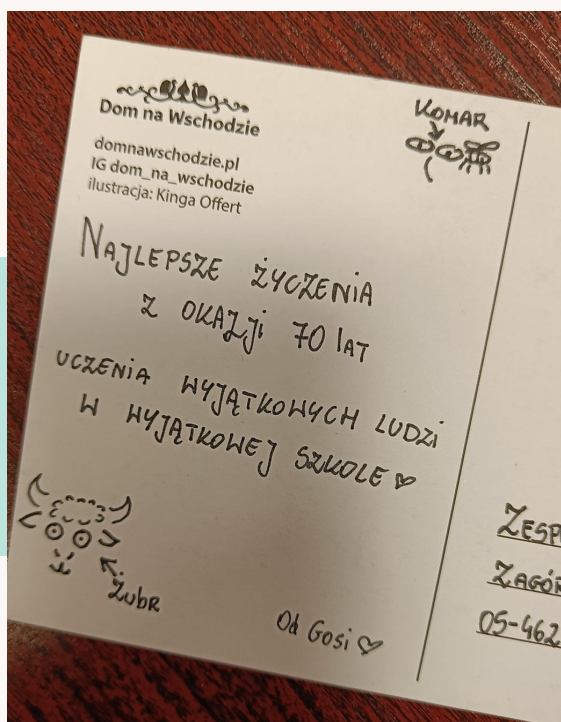 Dom na Wschodzie
domnawschodzie.pl
IG dom_na_wschodzie
ilustracja: Kinga Offert
KOMAR
NAJLEPSZE ŻYCZENIA
Z OKAZJI 70 LAT
UCZENIA WYJĄTKOWYCH LUDZI
W WYJĄTKOWEJ SZKOLE
ŻUBR
Od Gosi
05-462